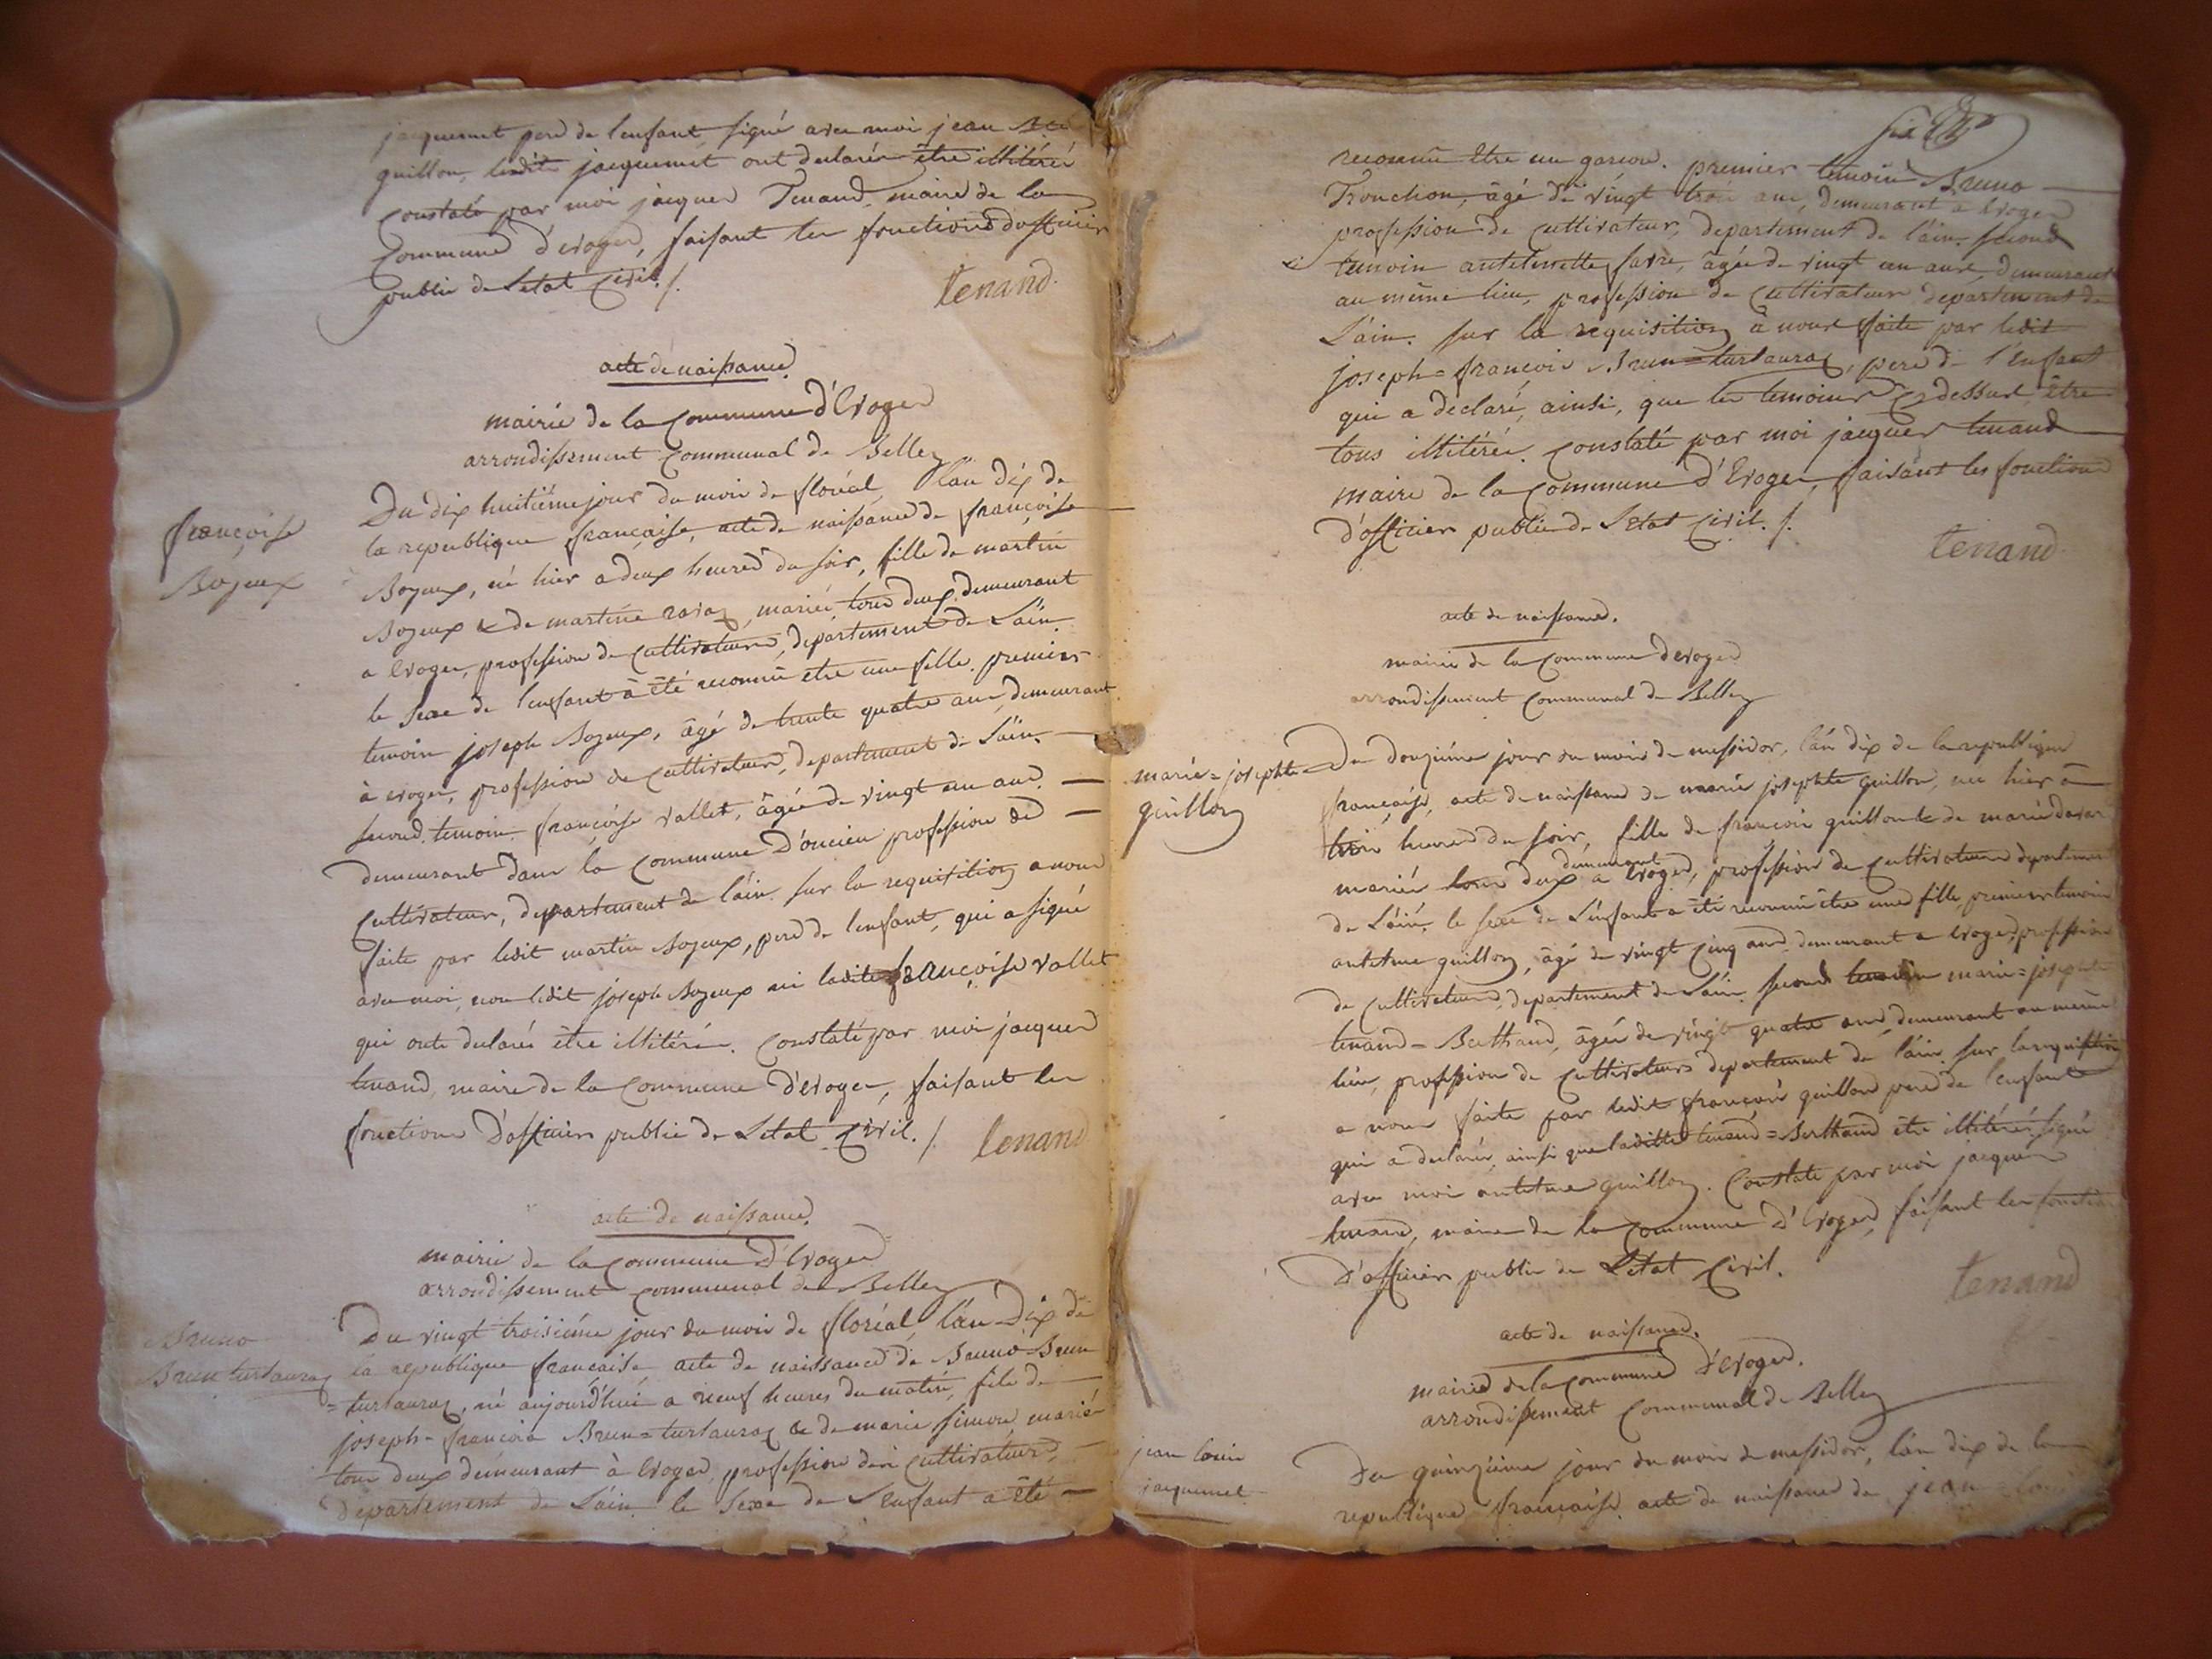 jacquemet pere de l'enfant signé avec moi jean
guillon, ledit jacquemet ont declarés être illitérés
constaté par moi jacques Tenand maire de la
Commune d'evoges, faisant les fonctions d'officier
public de l'etat civil ./.
tenand
acte de naissance.
mairie de la Commune d'Evoges
arrondissement Communal de Belley
françoise
Bozeux
Du dix huitième jour du mois de floréal l'an dix de
la republique française, acte de naissance de françoise
Bozeux, né hier a deux heures du soir, fille de martin
Bozeux & de martine ravaz, mariés tous deux demeurant
a Evoges, profession de Cultivateurs, departement de l'ain.
le sexe de l'enfant à été reconnu être une fille. premier
temoin joseph Bozeux, âgé de trente quatre ans, demeurant
à evoges, profession de Cultivateur, departement de l'ain.
second temoin françoise vallet, âgée de vingt un ans.
demeurant dans la Commune D'oncieu profession de
Cultivateur, departement de l'ain. sur la requisition a nous
faite par ledit martin Bozeux, pere de l'enfant, qui a signé
avec moi, non ledit joseph Bozeux ni ladite françoise vallet
qui ont declarés être illitérés. Constaté par moi jacques
tenand, maire de la Commune d'evoges, faisant les
fonctions D'officier public de l'etat civil. ./.
tenand
acte de naissance.
mairie de la Commune d'Evoges
arrondissement communal de Belley
Bruno
Brun turtauraz
Du vingt troisième jour du mois de floréal, l'an Dix de
la republique française, acte de naissance de Bruno Brun
=turtauraz, né aujourd'hui a neuf heures du matin, fils de
joseph=francois Brun=turtauraz & de marie simon, mariés
tous deux demeurant à Evoges, profession des Cultivateurs,
departement de l'ain. le sexe de l'enfant a été
six
reconnu être un garçon. premier temoin Bruno
Tronchon, âgé de vingt trois ans, demeurant a Evoges
profession de Cultivateur, departement de l'ain. second
temoin antelmette favre, âgée de vingt un ans, demeurant
au même lieu, profession de Cultivateur departement de
l'ain. sur la requisition à nous faite par ledit
joseph=françois Brun=turtauraz, pere de l'enfant
qui a declaré, ainsi, que les temoins cy dessus être
tous illitérés. constaté par moi jacques tenand
maire de la Commune d'Evoges, faisant les fonctions
d'officier public de l'Etat Civil. ./.
tenand
acte de naissance.
mairie de la Commune d'evoges
arrondissement Communal de Belley
marie=josephte
guillon
Du Douzième jour du mois de messidor, l'an dix de la republique
française, acte de naissance de marie josephte guillon, née hier à
trois heures du soir, fille de françois guillon & de marie
mariés tous deux demeurant a Evoges, profession de Cultivateurs departement
de l'ain, le sexe de l'enfant a été reconnu être une fille, premier temoin
antelme guillon, âgé de vingt cinq ans demeurant a Evoges, profession
de Cultivateurs, departement de l'ain. second temoin marie=josephte
tenand=Berthaud, âgée de vingt quatre ans, demeurant au même
lieu, profession de Cultivateurs departement de l'ain. sur la requisition
a nous faite par ledit françois guillon pere de l'enfant
qui a declarés, ainsi que laditte tenand=Berthaud être illitérés, signé
avec moi antelme guillon. Constaté par moi jacques
tenand, maire de la Commune D'Evoges, faisant les fonctions
D'officier public de l'etat civil.
tenand
acte de naissance.
mairie de la commune d'evoges.
arrondissement Communal de Belley
jean louis
jacquemet
Du quinzième jour du mois de messidor, l'an dix de la
republique française. acte de naissance de jean